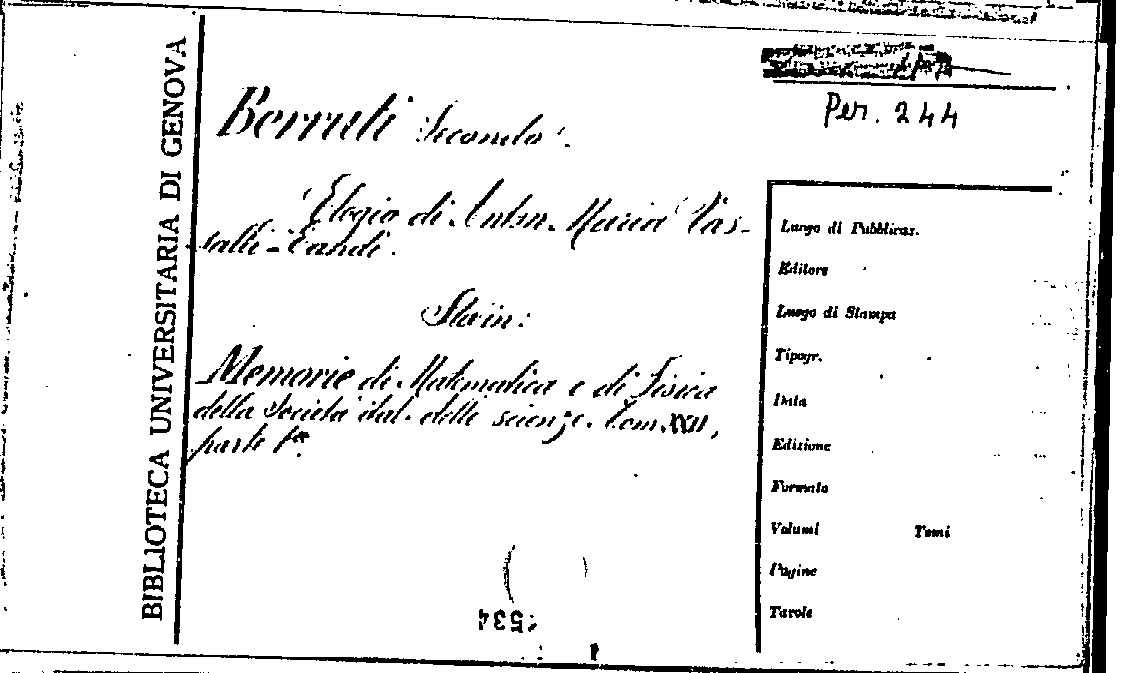 BIBLIOTECA UNIVERSITARIA DI GENOVA
Per. 244
Berruti Secondo.
Elogio di Anton. Maria Vas-
salli-Eandi.
Sta in:
Memorie di Matematica e di Fisica
della Società ital. delle scienze. Tom. XXII,
parte 1ª.
Luogo di Pubblicaz.
Editore
Luogo di Stampa
Tipogr.
Data
Edizione
Formato
Volumi Tomi
Pagine
Tavole